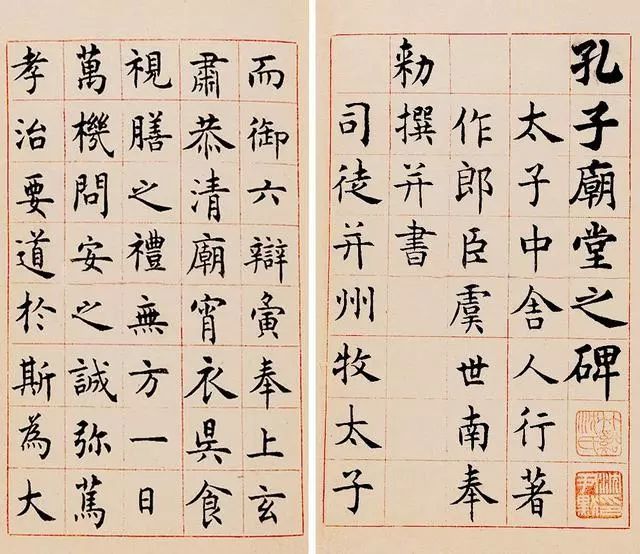 孔子廟堂之碑
太子中舍人行著
作郎臣虞世南奉
勑撰并書
司徒并州牧太子
而御六辯寅奉上玄
肅恭清廟宵衣昃食
視膳之禮無方一日
萬機問安之誠弥篤
孝治要道於斯為大